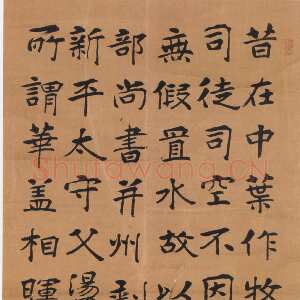 昔在中葉作牧
司徒司空不因
無假置水故以
部尚書并州刺
新平太守父湯
所謂華盖相暉
Shufawang.CN